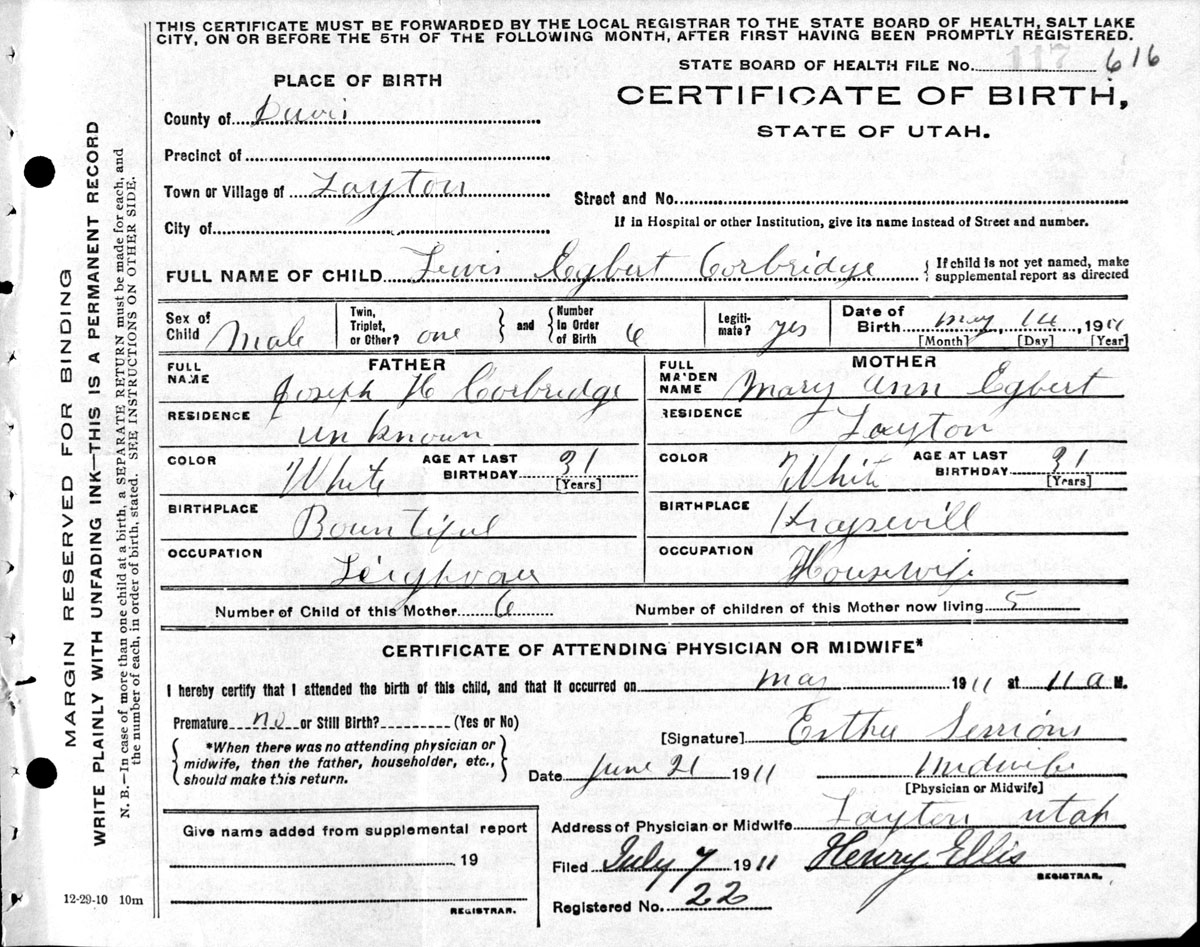 THIS CERTIFICATE MUST BE FORWARDED BY THE LOCAL REGISTRAR TO THE STATE BOARD OF HEALTH, SALT LAKE
CITY, ON OR BEFORE THE 5TH OF THE FOLLOWING MONTH, AFTER FIRST HAVING BEEN PROMPTLY REGISTERED.
STATE BOARD OF HEALTH FILE No. 117 616
PLACE OF BIRTH
CERTIFICATE OF BIRTH,
STATE OF UTAH.
County of Davis
Precinct of
Town or Village of Layton
Street and No.
If in Hospital or other Institution, give its name instead of Street and number.
City of
FULL NAME OF CHILD Lewis Egbert Corbridge { If child is not yet named, make
supplemental report as directed
Sex of Child Male
Twin, Triplet, or Other? one } and { Number in Order of Birth 6
Legiti-mate? yes
Date of Birth May 14, 1911
[Month] [Day] [Year]
FATHER
FULL NAME Joseph H Corbridge
RESIDENCE unknown
COLOR White AGE AT LAST BIRTHDAY 31 [Years]
BIRTHPLACE Bountiful
OCCUPATION
MOTHER
FULL MAIDEN NAME Mary Ann Egbert
RESIDENCE Layton
COLOR White AGE AT LAST BIRTHDAY 31 [Years]
BIRTHPLACE Kaysvill
OCCUPATION Housewife
Number of Child of this Mother 6 Number of children of this Mother now living 5
CERTIFICATE OF ATTENDING PHYSICIAN OR MIDWIFE*
I hereby certify that I attended the birth of this child, and that it occurred on May 1911 at 11 a M.
Premature no or Still Birth? (Yes or No)
[Signature] Esther Sessions
{ *When there was no attending physician or
midwife, then the father, householder, etc.,
should make this return. }
Date June 21 1911 Midwife
[Physician or Midwife]
Give name added from supplemental report
19
REGISTRAR.
Address of Physician or Midwife Layton Utah
Filed July 7 1911 Henry Ellis
REGISTRAR.
Registered No. 22
12-29-10 10m
MARGIN RESERVED FOR BINDING
WRITE PLAINLY WITH UNFADING INK—THIS IS A PERMANENT RECORD
N. B.—In case of more than one child at a birth, a SEPARATE RETURN must be made for each, and
the number of each, in order of birth, stated. SEE INSTRUCTIONS ON OTHER SIDE.